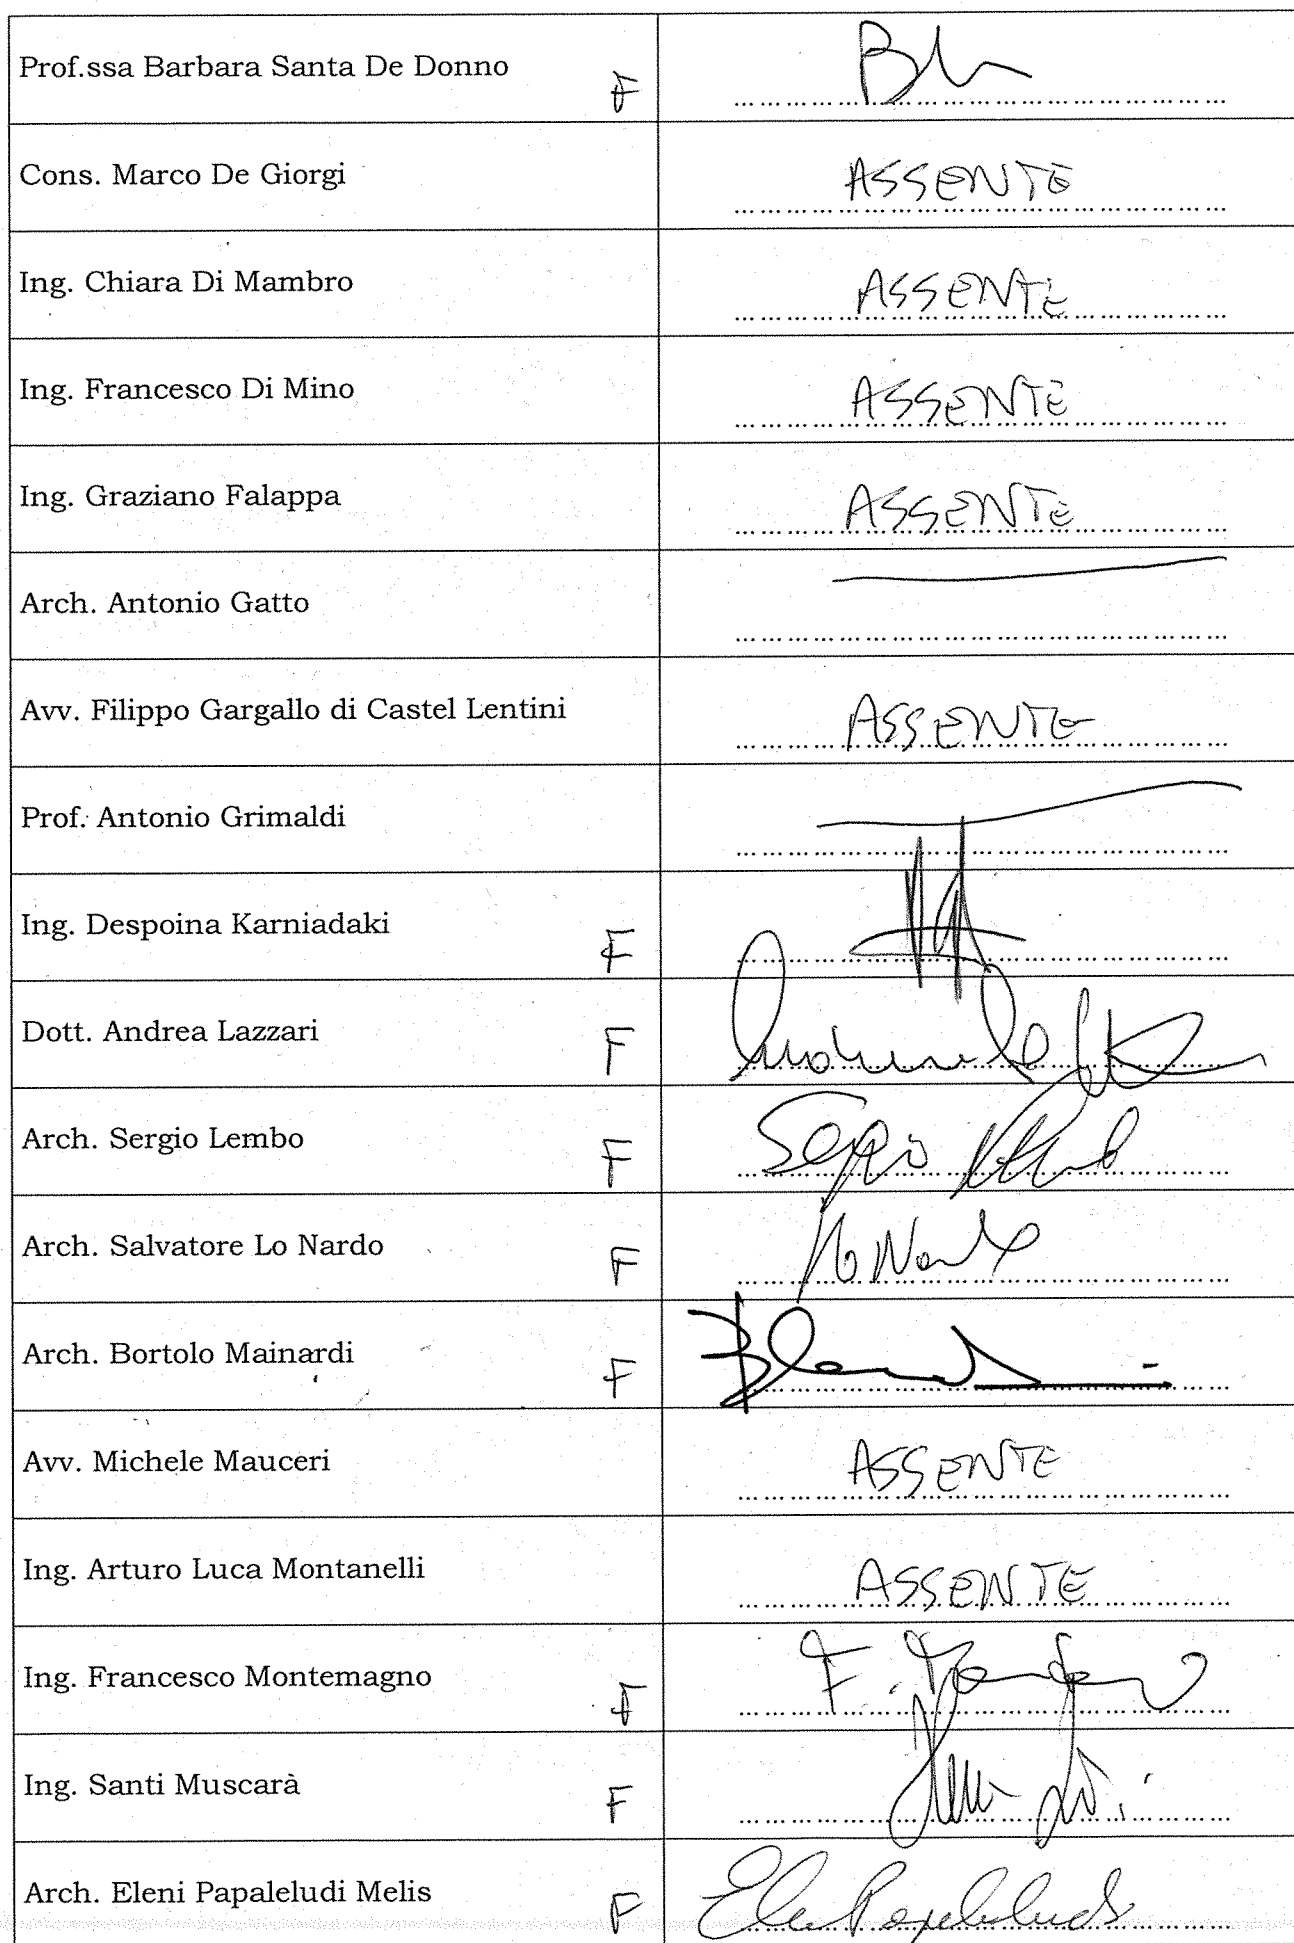 Prof.ssa Barbara Santa De Donno F
Cons. Marco De Giorgi ASSENTE
Ing. Chiara Di Mambro ASSENTE
Ing. Francesco Di Mino ASSENTE
Ing. Graziano Falappa ASSENTE
Arch. Antonio Gatto
Avv. Filippo Gargallo di Castel Lentini ASSENTE
Prof. Antonio Grimaldi
Ing. Despoina Karniadaki F
Dott. Andrea Lazzari F
Arch. Sergio Lembo F Sergio
Arch. Salvatore Lo Nardo F
Arch. Bortolo Mainardi F
Avv. Michele Mauceri ASSENTE
Ing. Arturo Luca Montanelli ASSENTE
Ing. Francesco Montemagno F F.
Ing. Santi Muscarà F
Arch. Eleni Papaleludi Melis F